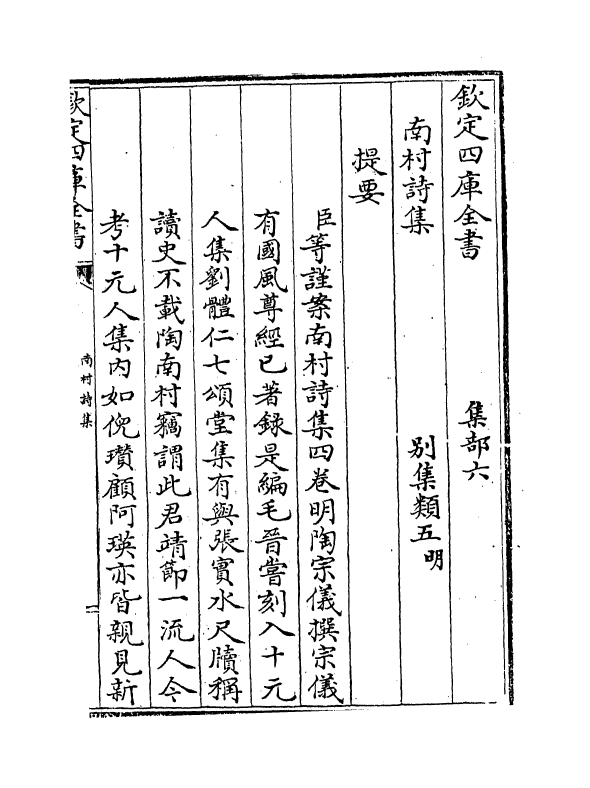 欽定四庫全書　集部六
南村詩集　別集類五明
提要
臣等謹案南村詩集四卷明陶宗儀撰宗儀
有國風尊經已著録是編毛晉嘗刻入十元
人集劉體仁七頌堂集有與張實水尺牘稱
讀史不載陶南村竊謂此君靖節一流人今
考十元人集内如倪瓚顧阿瑛亦皆親見新
欽定四庫全書
南村詩集
一